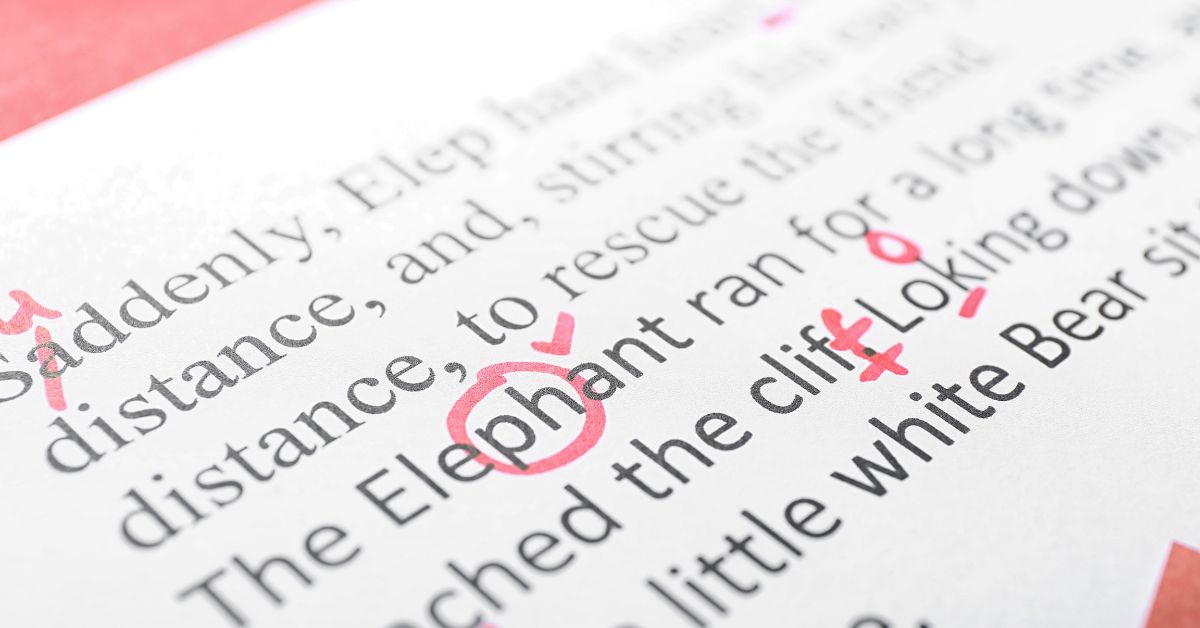 Saddenly, Elep hant hear
distance, and, stirring his
distance, to rescue the friend.
The Elephant ran for a long time,
ached the clif. Loking down
little white Bear sit